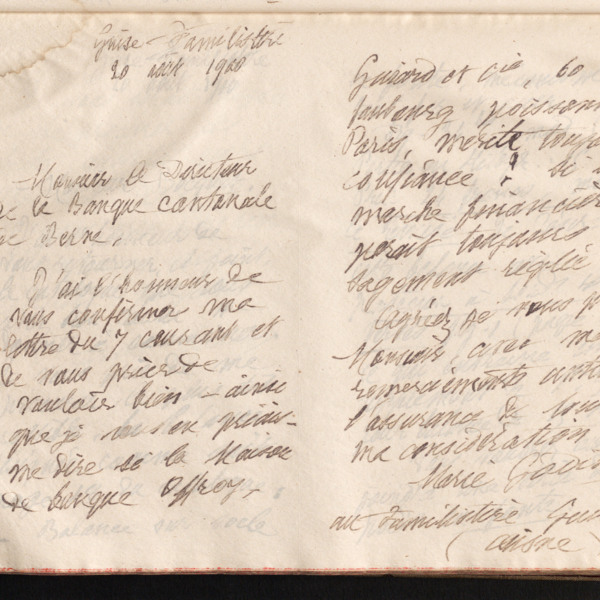 Guise-Familistère
20 août 1900
Monsieur le Directeur
de la Banque cantonale
de Berne.
J'ai l'honneur de
vous confirmer ma
lettre du 7 courant et
de vous prier de
vouloir bien - ainsi
que je vous en priais -
me dire si la Maison
de banque Offroy,
Guiard et Cie, 60
faubourg poissonn
Paris, mérite toujo
confiance ? si
marche financière
paraît toujours
sagement réglée
Agréez je vous p
Monsieur, avec me
remerciements anti
l'assurance de tou
ma considération
Marie Godin
au Familistère Gui
(Aisne)